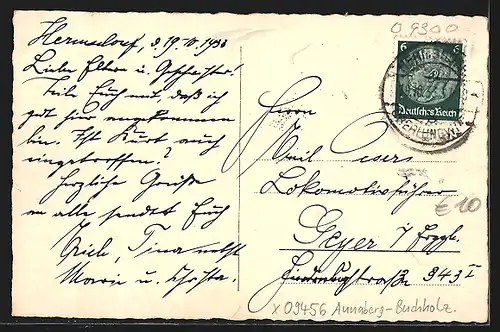 Hermsdorf, d. 19. IV. 1936
Liebe Eltern u. Geschwister!
Teile Euch mit, daß ich
gut hier angekommen
bin. Ist Kurt auch
eingetroffen?
Herzliche Grüße
an alle sendet Euch
Erich, Tina nebst
Marie u. Christa.
O 9300
6 6
Deutsches Reich
Herrn
Emil
Lokomotivführer
Geyer i/ Erzgb.
straße 343 I
€ 10
x 09456 Annaberg-Buchholz.